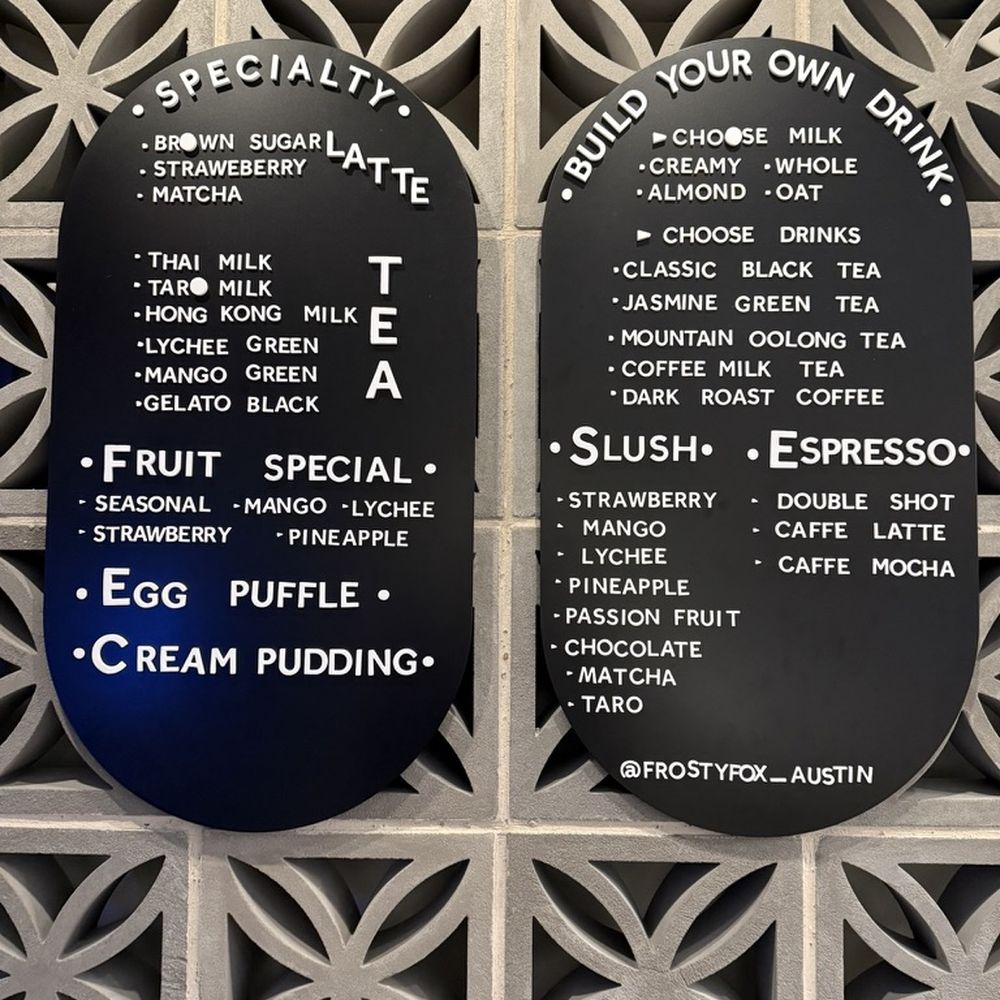 • SPECIALTY •
• BROWN SUGAR LATTE
• STRAWEBERRY
• MATCHA
• THAI MILK
• TARO MILK
• HONG KONG MILK
• LYCHEE GREEN
• MANGO GREEN
• GELATO BLACK
TEA
• FRUIT SPECIAL •
- SEASONAL - MANGO - LYCHEE
- STRAWBERRY - PINEAPPLE
• EGG PUFFLE •
• CREAM PUDDING •
• BUILD YOUR OWN DRINK •
► CHOOSE MILK
• CREAMY • WHOLE
• ALMOND • OAT
► CHOOSE DRINKS
• CLASSIC BLACK TEA
• JASMINE GREEN TEA
• MOUNTAIN OOLONG TEA
• COFFEE MILK TEA
• DARK ROAST COFFEE
• SLUSH •
- STRAWBERRY
- MANGO
- LYCHEE
- PINEAPPLE
- PASSION FRUIT
- CHOCOLATE
- MATCHA
- TARO
• ESPRESSO •
- DOUBLE SHOT
- CAFFE LATTE
- CAFFE MOCHA
@FROSTYFOX_AUSTIN